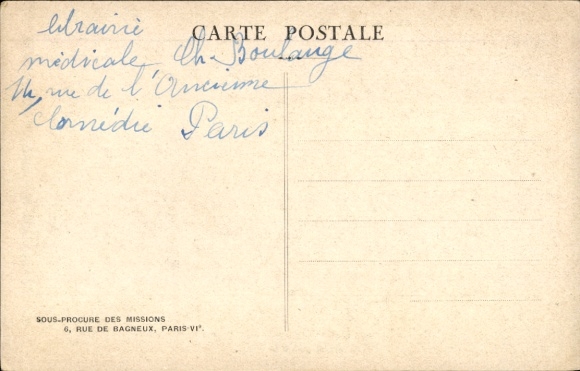 CARTE POSTALE
librairie
médicale Ch. Boulangé
14, rue de l'Ancienne
Comédie Paris
SOUS-PROCURE DES MISSIONS
6, RUE DE BAGNEUX, PARIS-VIe.